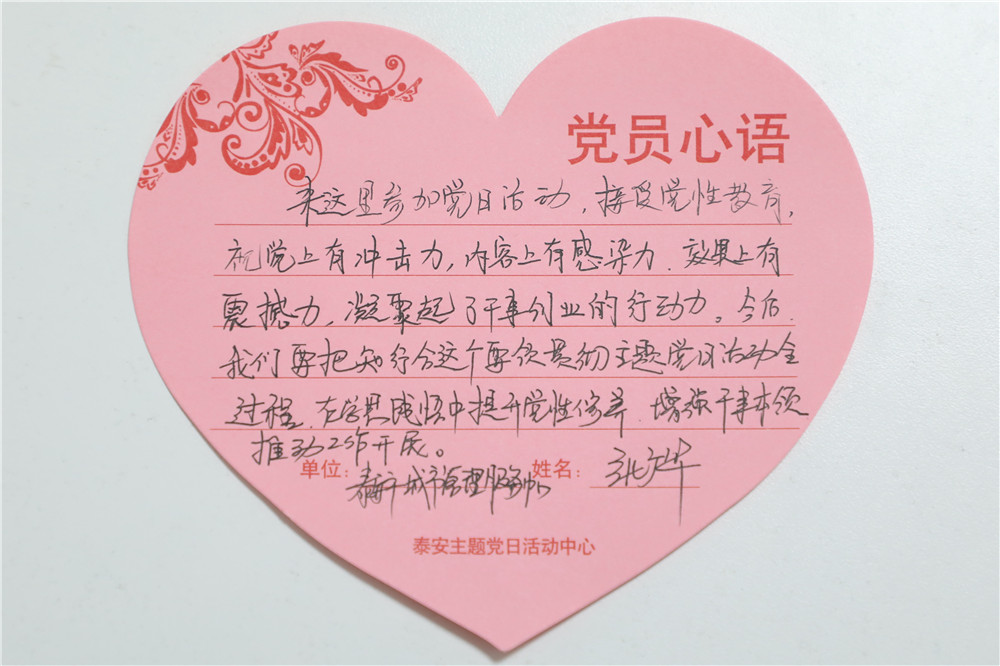 党员心语
来这里参加党日活动，接受党性教育，
视觉上有冲击力，内容上有感染力．效果上有
震撼力，凝聚起了干事创业的行动力。今后．
我们要把知行合这个要领贯彻主题党日活动全
过程．在学思践悟中提升党性修养．增强干事本领
推动工作开展。
单位：
城市管理服务中心
姓名：
泰安主题党日活动中心